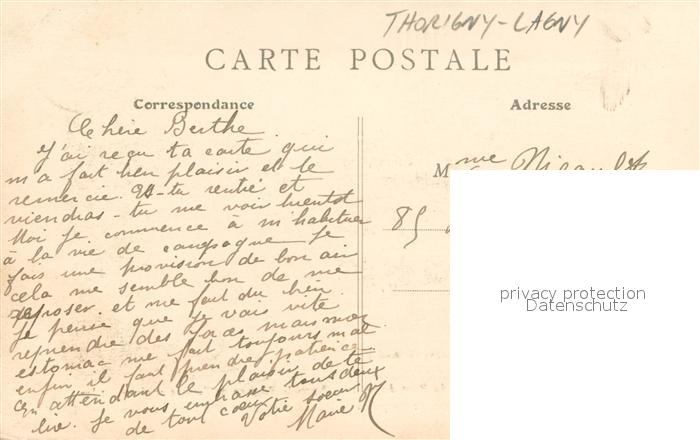 THORIGNY-LAGNY
CARTE POSTALE
Correspondance
Adresse
Chère Berthe
J'ai reçu ta carte qui
m'a fait bien plaisir et te
remercie. Es-tu rentré et
viendras-tu me voir bientôt
Moi je commence à m'habituer
à la vie de campagne je
fais une provision de bon air
cela me semble bon de me
reposer. et me fait du bien
je pense que je vais vite
reprendre des forces mais mon
estomac me fait toujours mal
enfin il faut prendre patience
En attendant le plaisir de te
lire. je vous embrasse tous deux
de tout coeur Votre soeur
Marie
Mme
85
privacy protection
Datenschutz